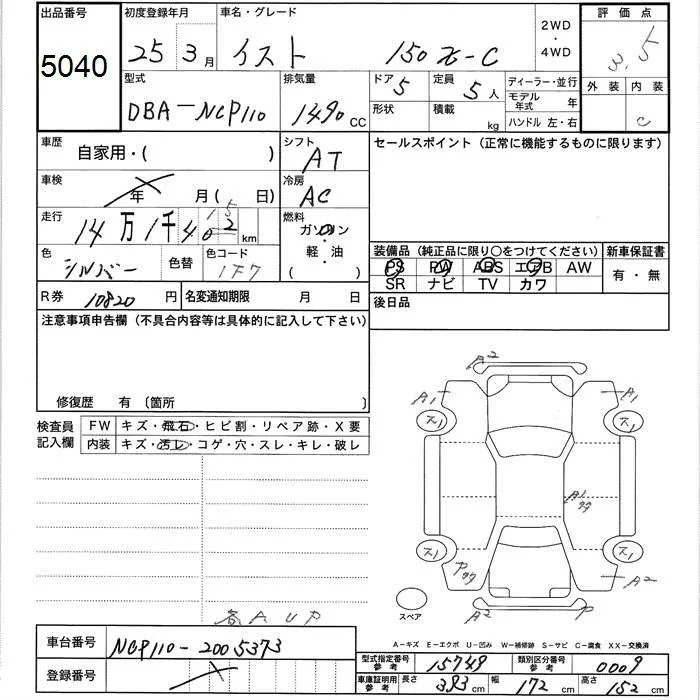 出品番号 初度登録年月 車名・グレード 2WD・4WD 評価点
5040 25年3月 イスト 150X-C 3.5
型式 排気量 ドア 5 定員 5人 ディーラー・並行 外装 内装
DBA-NCP110 1490cc 形状 積載 kg モデル年式 年 C
ハンドル 左・右
車歴 自家用・( ) シフト AT セールスポイント(正常に機能するものに限ります)
車検 年 月( 日) 冷房 AC
走行 14万1千402km 燃料 ガソリン・軽・油( )
15
色 シルバー 色替 色コード 1F7 装備品(純正品に限り○をつけてください) 新車保証書
PS PW ABS エアB AW 有・無
SR ナビ TV カワ
R券 10820円 名変通知期限 月 日 後日品
注意事項申告欄(不具合内容等は具体的に記入して下さい)
修復歴 有 〔箇所 〕
検査員記入欄 FW キズ・飛石・ヒビ割・リペア跡・X要
内装 キズ・汚レ・コゲ・穴・スレ・キレ・破レ
A2
A1 A1
ス1 ス1
A1
ス1 ス1
A2
スペア A2 P
各AUP
A-キズ E-エクボ U-凹み W-補修跡 S-サビ C-腐食 XX-交換済
車台番号 NCP110-2005373
登録番号
型式指定番号 参考 15749 類別区分番号 参考 0009
車庫証明用 参考 長さ 383cm 幅 172cm 高さ 152cm